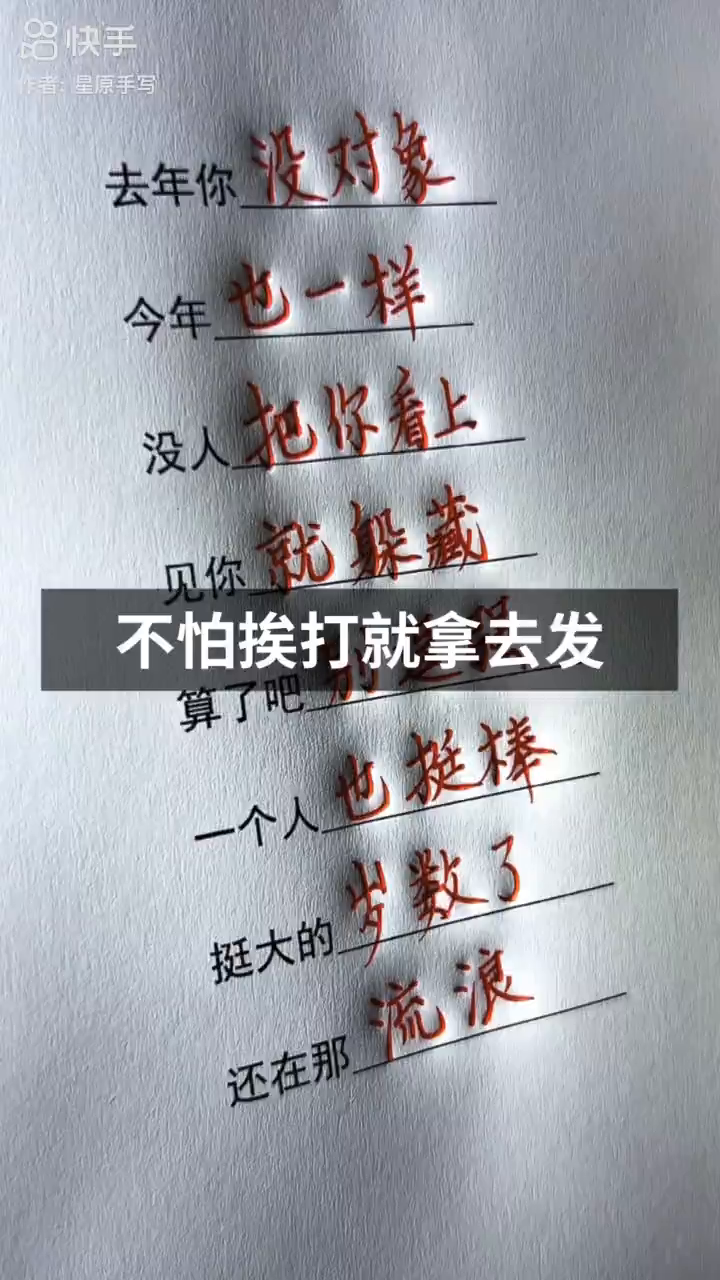 快手
作者：星原手写
去年你没对象
今年也一样
没人把你看上
见你就躲藏
不怕挨打就拿去发
算了吧别逞强
一个人也挺棒
挺大的岁数了
还在那流浪